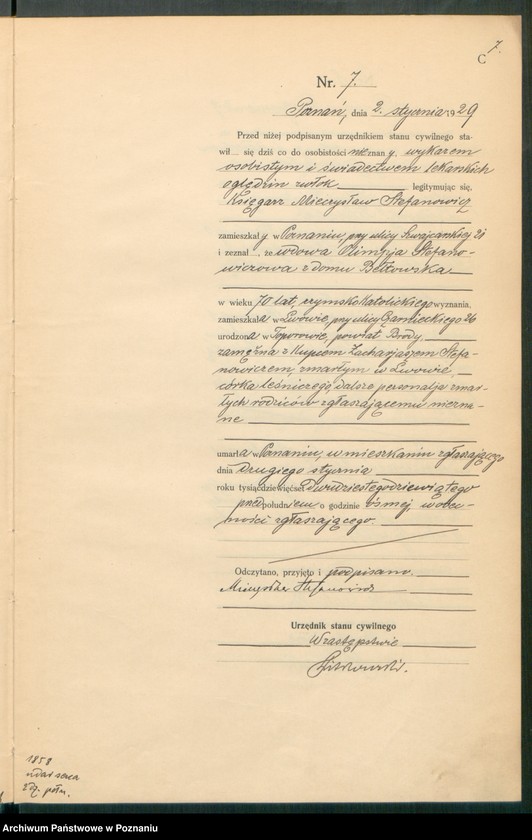 7.
C
Nr. 7.
Poznań, dnia 2. stycznia 1929
Przed niżej podpisanym urzędnikiem stanu cywilnego sta-
wił się dziś co do osobistości nieznany, wykazem
osobistym i świadectwem lekarskich
oględzin zwłok legitymując się,
Księgarz Mieczysław Stefanowicz
zamieszkały w Poznaniu, przy ulicy Szwajcarskiej 21
i zeznał, że wdowa Olimpja Stefano-
wiczowa z domu Bełkowska
w wieku 70 lat, rzymskokatolickiego wyznania,
zamieszkała w Lwowie, przy ulicy Czarnieckiego 26
urodzona w Toporowie, powiat Brody,
zamężna z kupcem Zacharjaszem Stefa-
nowiczem zmarłym w Lwowie,
córka leśniczego, dalsze personalja zmar-
łych rodziców zgłaszającemu niezna-
ne
umarła w Poznaniu, w mieszkaniu zgłaszającego
dnia drugiego stycznia
roku tysiąc dziewięćset dwudziestegodziewiątego
przed południem o godzinie ósmej w obec-
ności zgłaszającego.
Odczytano, przyjęto i podpisano.
Mieczysław Stefanowicz
Urzędnik stanu cywilnego
W zastępstwie
1858
udar serca
Archiwum Państwowe w Poznaniu